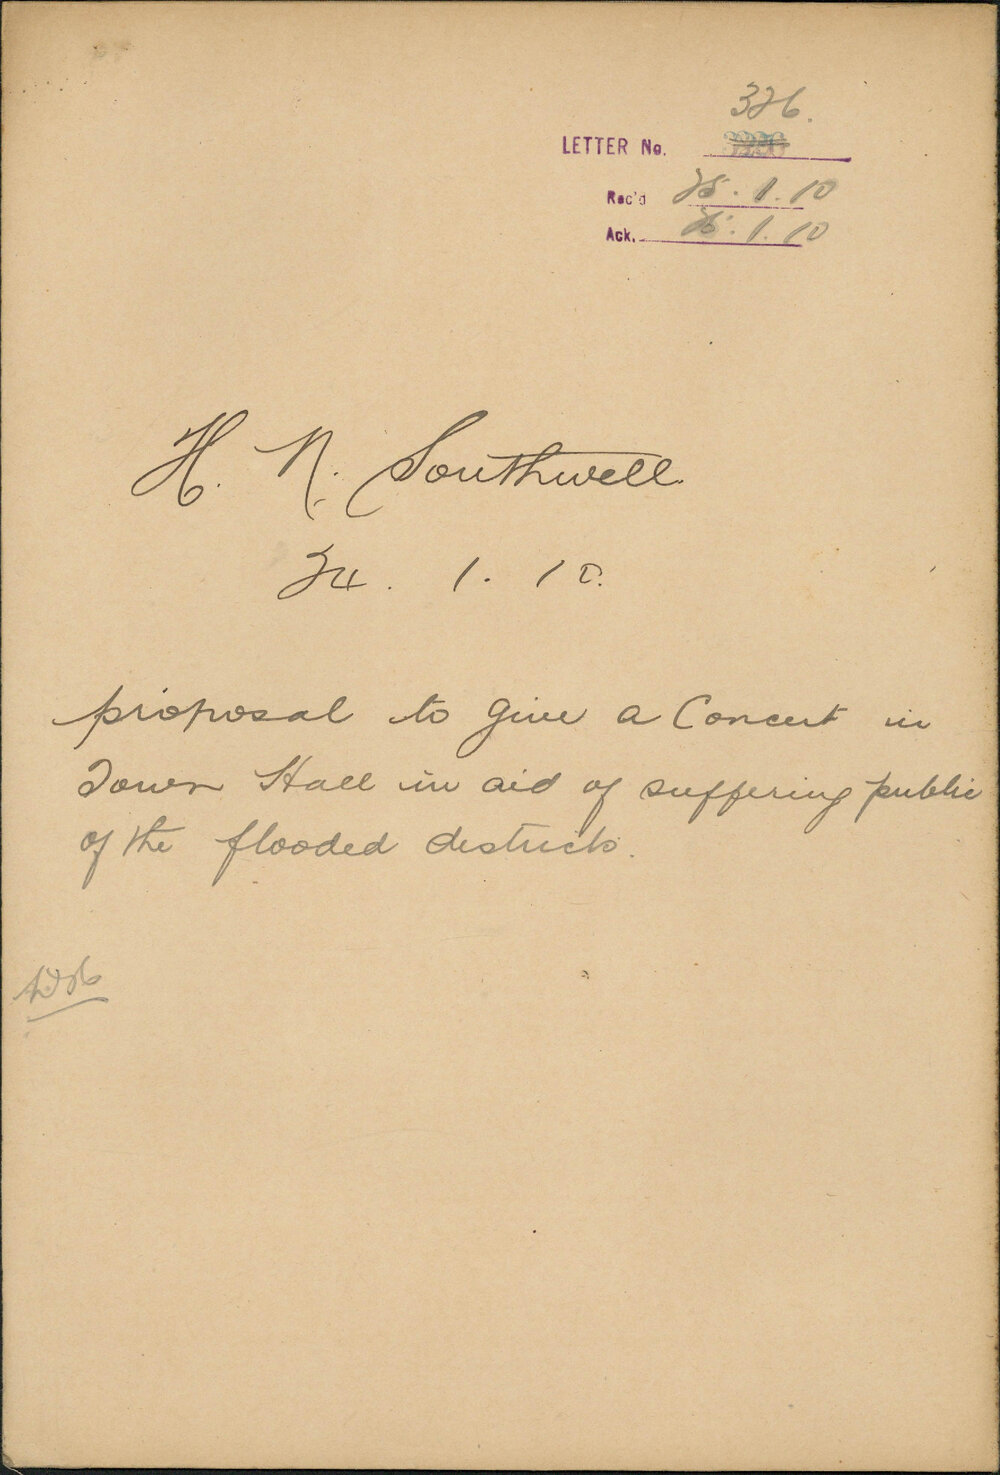 326.
LETTER No.
Rec'd 25.1.10
Ack. 25.1.10
H. N. Southwell.
24. 1. 10.
proposal to give a Concert in
Town Hall in aid of suffering public
of the flooded districts.